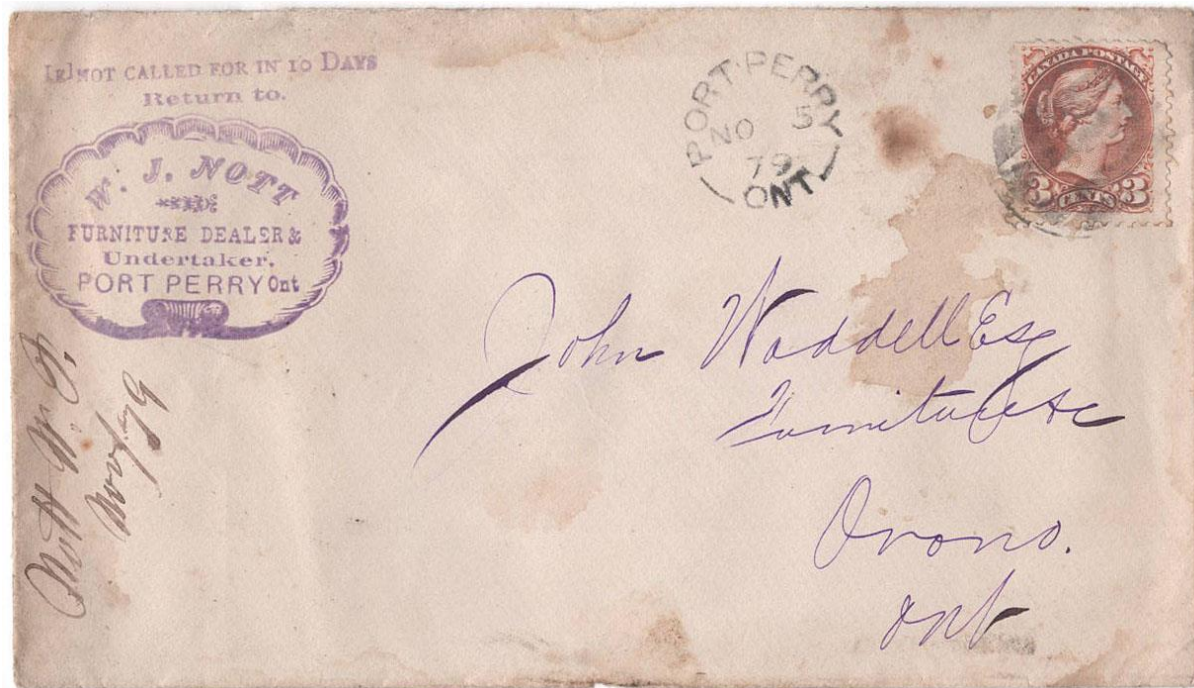 [IF] NOT CALLED FOR IN 10 DAYS
Return to.
W. J. NOTT
FURNITURE DEALER &
Undertaker.
PORT PERRY Ont
PORT PERRY
NO 5
79
ONT
CANADA POSTAGE
3 CENTS 3
John Waddell Esq
Furniture &c
Orono.
Ont
Nott W. J.
Nov/79